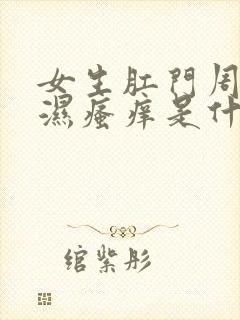 女生肛門周
濕瘙痒是什
綰紫彤